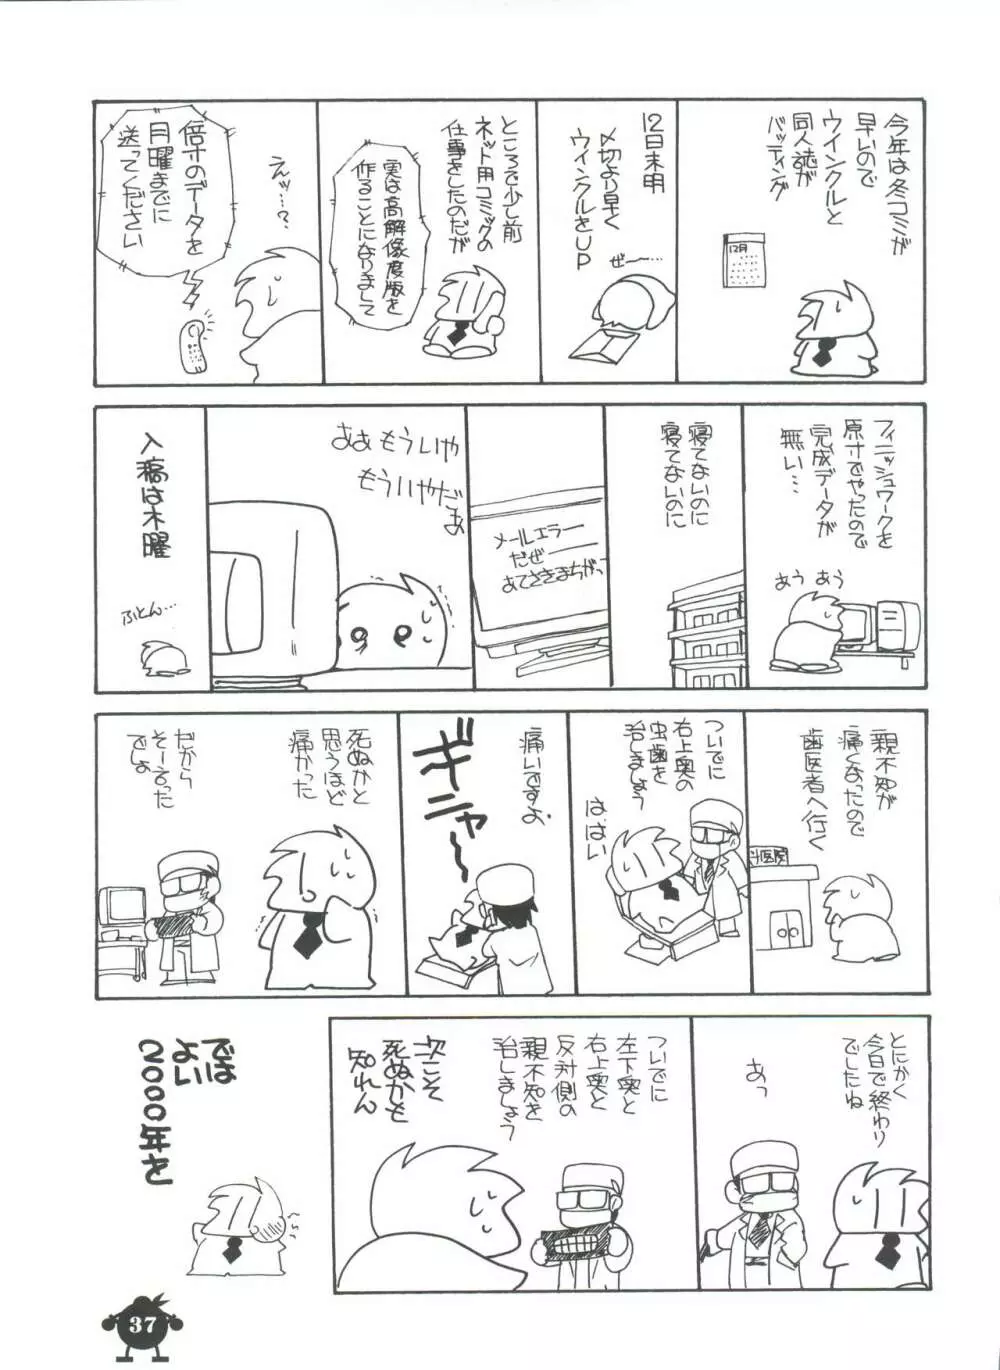 今年は冬コミが
早いので
ウインクルと
同人誌が
バッティング
12月
12日未明
〆切より早く
ウインクルをUP
ぜ〜…
ところで少し前
ネット用コミックの
仕事をしたのだが
実は高解像度版を
作ることになりまして
えッ…?
倍寸のデータを
月曜までに
送ってください
フィニッシュワークを
原寸でやったので
完成データが
無い…
あう あう
寝てないのに
寝てないのに
メールエラー
だぜ――
あてさきまちがっ
ああもういや
もういやだ
あ
入稿は木曜
ふとん…
親不知が
痛くなったので
歯医者へ行く
ついでに
右上奥の
虫歯を
治しましょう
は、はい
痛いですよ、
ギニャ〜
死ぬかと
思うほど
痛かった
だから
そー言った
でしょ
とにかく
今日で終わり
でしたね
あっ
ついでに
左下奥と
右上奥と
反対側の
親不知を
治しましょう
次こそ
死ぬかも
知れん
では
よい
2000年を
37